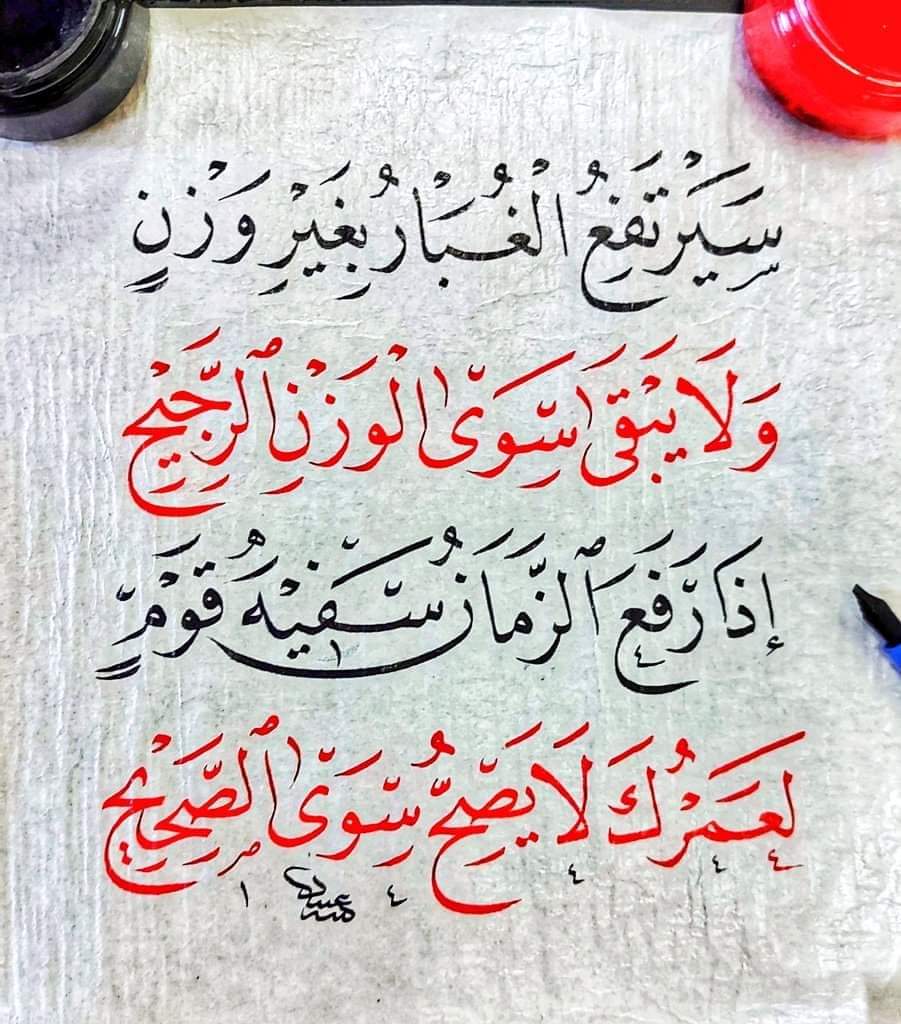 سَيَرْتَفِعُ الْغُبَارُ بِغَيْرِ وَزْنٍ
وَلَا يَبْقَىٰ سِوَى الْوَزْنِ ٱلرَّجِيْحِ
إِذَا رَفَعَ ٱلزَّمَانُ سَّفِيْهَ قَوْمٍ
لَعَمَرُكَ لَا يَصِحُّ سِوَى ٱلصَّحِيْحِ